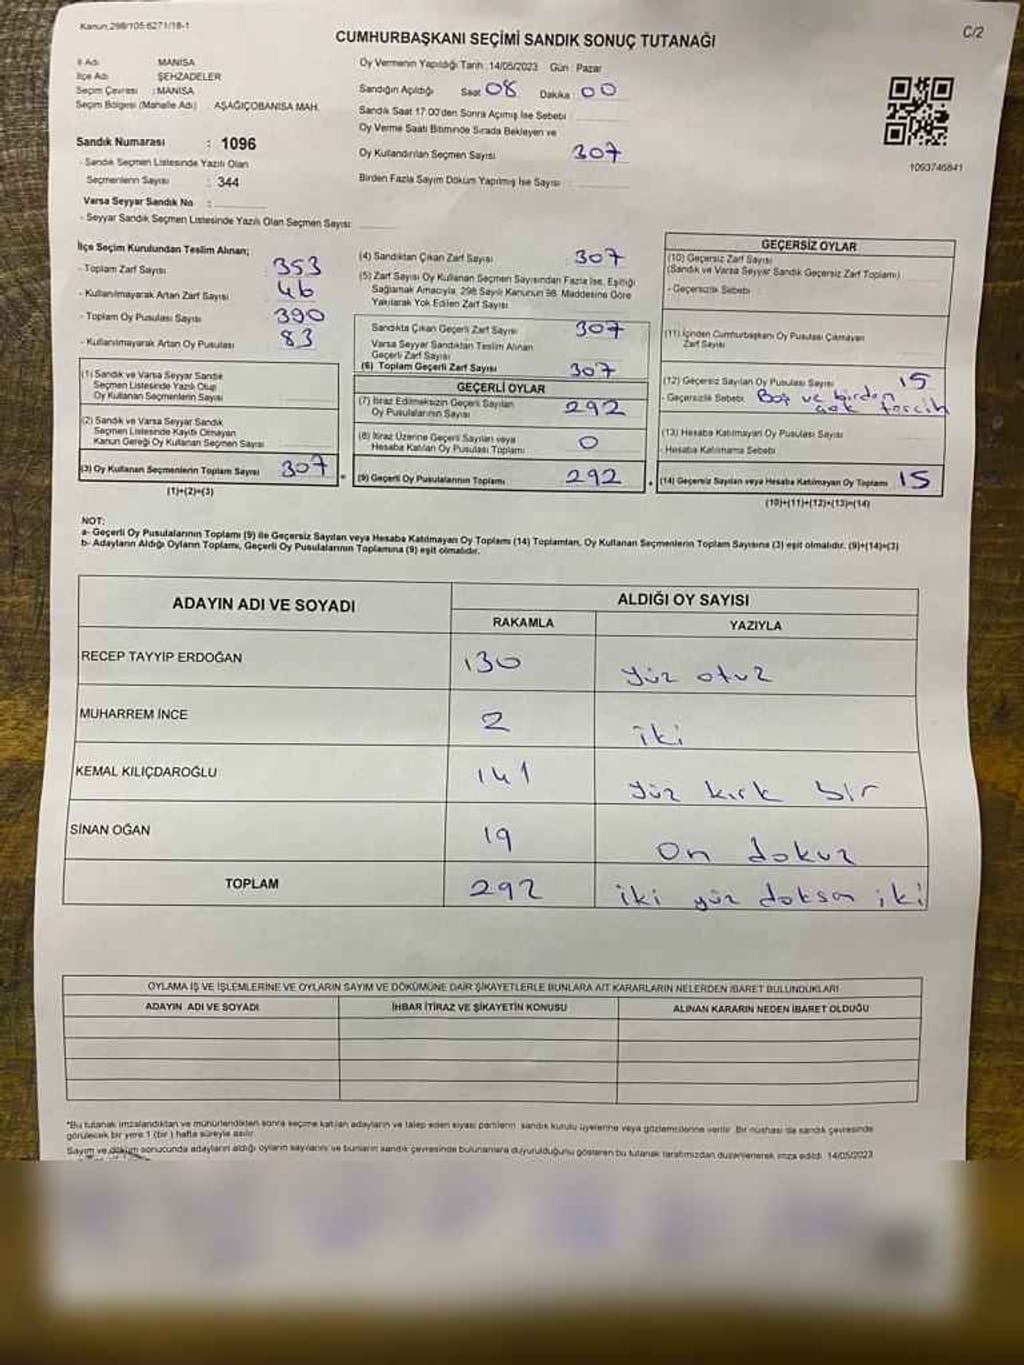 Kanun.298/105-6271/18-1
C/2
CUMHURBAŞKANI SEÇİMİ SANDIK SONUÇ TUTANAĞI
İl Adı MANİSA
İlçe Adı ŞEHZADELER
Seçim Çevresi : MANİSA
Seçim Bölgesi (Mahalle Adı) AŞAĞIÇOBANİSA MAH.
Sandık Numarası : 1096
- Sandık Seçmen Listesinde Yazılı Olan
Seçmenlerin Sayısı : 344
Varsa Seyyar Sandık No :
- Seyyar Sandık Seçmen Listesinde Yazılı Olan Seçmen Sayısı:
Oy Vermenin Yapıldığı Tarih :14/05/2023 Gün : Pazar
Sandığın Açıldığı Saat 08 Dakika : 00
Sandık Saat 17.00'den Sonra Açmış İse Sebebi
Oy Verme Saati Bitiminde Sırada Bekleyen ve
Oy Kullandırılan Seçmen Sayısı 307
Birden Fazla Sayım Döküm Yapılmış İse Sayısı :
1093746841
İlçe Seçim Kurulundan Teslim Alınan;
- Toplam Zarf Sayısı 353
- Kullanılmayarak Artan Zarf Sayısı 46
- Toplam Oy Pusulası Sayısı 390
- Kullanılmayarak Artan Oy Pusulası 83
(1) Sandık ve Varsa Seyyar Sandık
Seçmen Listesinde Yazılı Olup
Oy Kullanan Seçmenlerin Sayısı
(2) Sandık ve Varsa Seyyar Sandık
Seçmen Listesinde Kayıtlı Olmayan
Kanun Gereği Oy Kullanan Seçmen Sayısı
(3) Oy Kullanan Seçmenlerin Toplam Sayısı 307
(1)+(2)=(3)
(4) Sandıktan Çıkan Zarf Sayısı 307
(5) Zarf Sayısı Oy Kullanan Seçmen Sayısından Fazla İse, Eşitliği
Sağlamak Amacıyla, 298 Sayılı Kanunun 98. Maddesine Göre
Yakılarak Yok Edilen Zarf Sayısı
Sandıkta Çıkan Geçerli Zarf Sayısı 307
Varsa Seyyar Sandıktan Teslim Alınan
Geçerli Zarf Sayısı
(6) Toplam Geçerli Zarf Sayısı 307
GEÇERLİ OYLAR
(7) İtiraz Edilmeksizin Geçerli Sayılan
Oy Pusulalarının Sayısı 292
(8) İtiraz Üzerine Geçerli Sayılan veya
Hesaba Katılan Oy Pusulası Toplamı 0
(9) Geçerli Oy Pusulalarının Toplamı 292
GEÇERSİZ OYLAR
(10) Geçersiz Zarf Sayısı
(Sandık ve Varsa Seyyar Sandık Geçersiz Zarf Toplamı)
- Geçersizlik Sebebi :
(11) İçinden Cumhurbaşkanı Oy Pusulası Çıkmayan
Zarf Sayısı
(12) Geçersiz Sayılan Oy Pusulası Sayısı 15
- Geçersizlik Sebebi Boş ve birden
çok tercih
(13) Hesaba Katılmayan Oy Pusulası Sayısı
- Hesaba Katılmama Sebebi
(14) Geçersiz Sayılan veya Hesaba Katılmayan Oy Toplamı 15
(10)+(11)+(12)+(13)=(14)
NOT:
a- Geçerli Oy Pusulalarının Toplamı (9) ile Geçersiz Sayılan veya Hesaba Katılmayan Oy Toplamı (14) Toplamları, Oy Kullanan Seçmenlerin Toplam Sayısına (3) eşit olmalıdır. (9)+(14)=(3)
b- Adayların Aldığı Oyların Toplamı, Geçerli Oy Pusulalarının Toplamına (9) eşit olmalıdır.
ADAYIN ADI VE SOYADI ALDIĞI OY SAYISI
RAKAMLA YAZIYLA
RECEP TAYYİP ERDOĞAN 130 yüz otuz
MUHARREM İNCE 2 iki
KEMAL KILIÇDAROĞLU 141 yüz kırk bir
SİNAN OĞAN 19 on dokuz
TOPLAM 292 iki yüz doksan iki
OYLAMA İŞ VE İŞLEMLERİNE VE OYLARIN SAYIM VE DÖKÜMÜNE DAİR ŞİKAYETLERLE BUNLARA AİT KARARLARIN NELERDEN İBARET BULUNDUKLARI
ADAYIN ADI VE SOYADI İHBAR İTİRAZ VE ŞİKAYETİN KONUSU ALINAN KARARIN NEDEN İBARET OLDUĞU
*Bu tutanak imzalandıktan ve mühürlendikten sonra seçime katılan adayların ve talep eden siyasi partilerin sandık kurulu üyelerine veya gözlemcilerine verilir. Bir nüshası da sandık çevresinde
görülecek bir yere 1 (bir) hafta süreyle asılır.
Sayım ve döküm sonucunda adayların aldığı oyların sayılarını ve bunların sandık çevresinde bulunanlara duyurulduğunu gösteren bu tutanak tarafımızdan düzenlenerek imza edildi. 14/05/2023